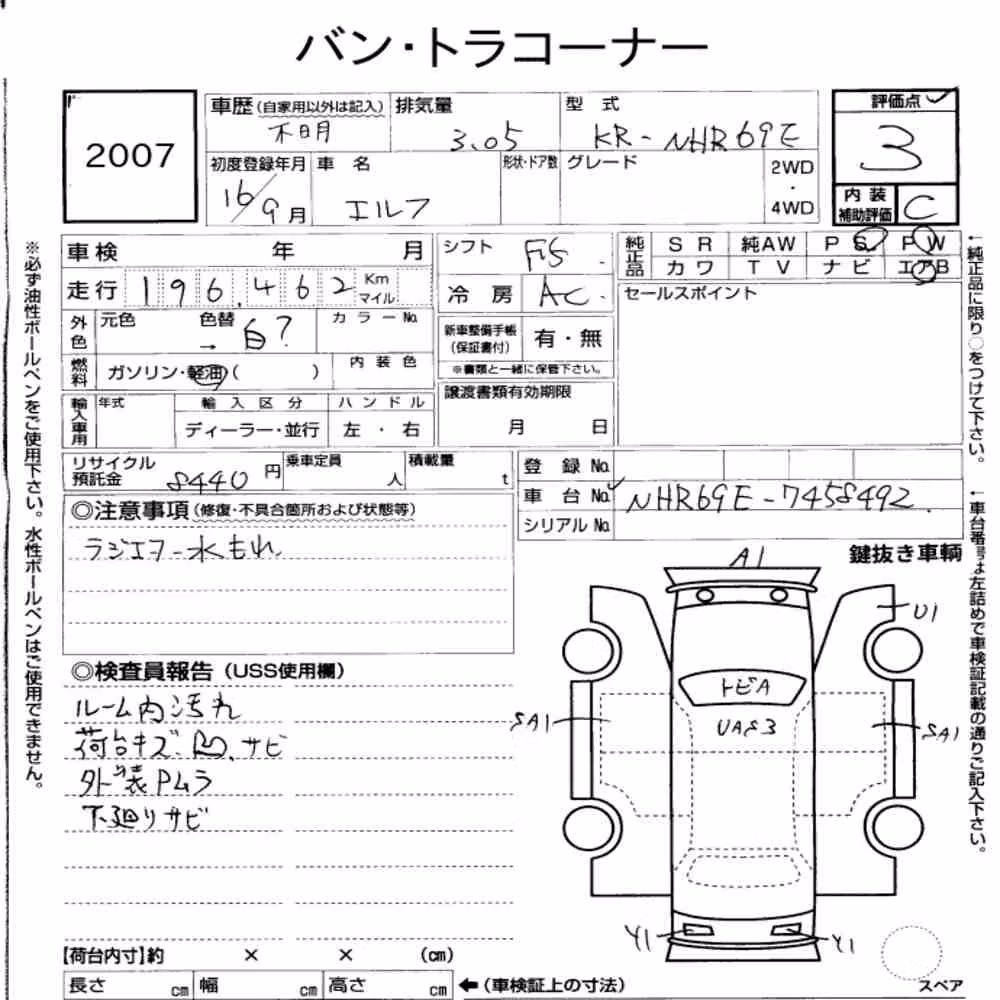 バン・トラコーナー
2007
車歴(自家用以外は記入)
不明
排気量
3.05
型式
KR-NHR69E
評価点
3
初度登録年月
16/9月
車名
エルフ
形状・ドア数
グレード
2WD
・
4WD
内装
補助評価
C
車検 年 月
走行 196,462 Km
マイル
外色
元色 色替
→ 白?
カラーNo.
燃料
ガソリン・軽油( )
内装色
輸入車用
年式
輸入区分
ディーラー・並行
ハンドル
左・右
シフト F5
冷房 AC
新車整備手帳
(保証書付)
有・無
※書類と一緒に保管下さい。
譲渡書類有効期限
月 日
純正品
SR 純AW PS PW
カワ TV ナビ エアB
セールスポイント
リサイクル
預託金 8440円
乗車定員
人
積載量
t
登録No.
車台No. NHR69E-7458492
シリアルNo.
◎注意事項(修復・不具合箇所および状態等)
ラジエター水もれ
鍵抜き車輌
◎検査員報告(USS使用欄)
ルーム内汚れ
荷台キズ、凹、サビ
外装Pムラ
下廻りサビ
A1
U1
トビA
UAS3
SA1
SA1
Y1
Y1
【荷台内寸】約 × × (cm)
長さ cm 幅 cm 高さ cm
←(車検証上の寸法)
スペア
※必ず油性ボールペンをご使用下さい。水性ボールペンはご使用できません。
←純正品に限り○をつけて下さい。
←車台番号は左詰めで車検証記載の通りご記入下さい。